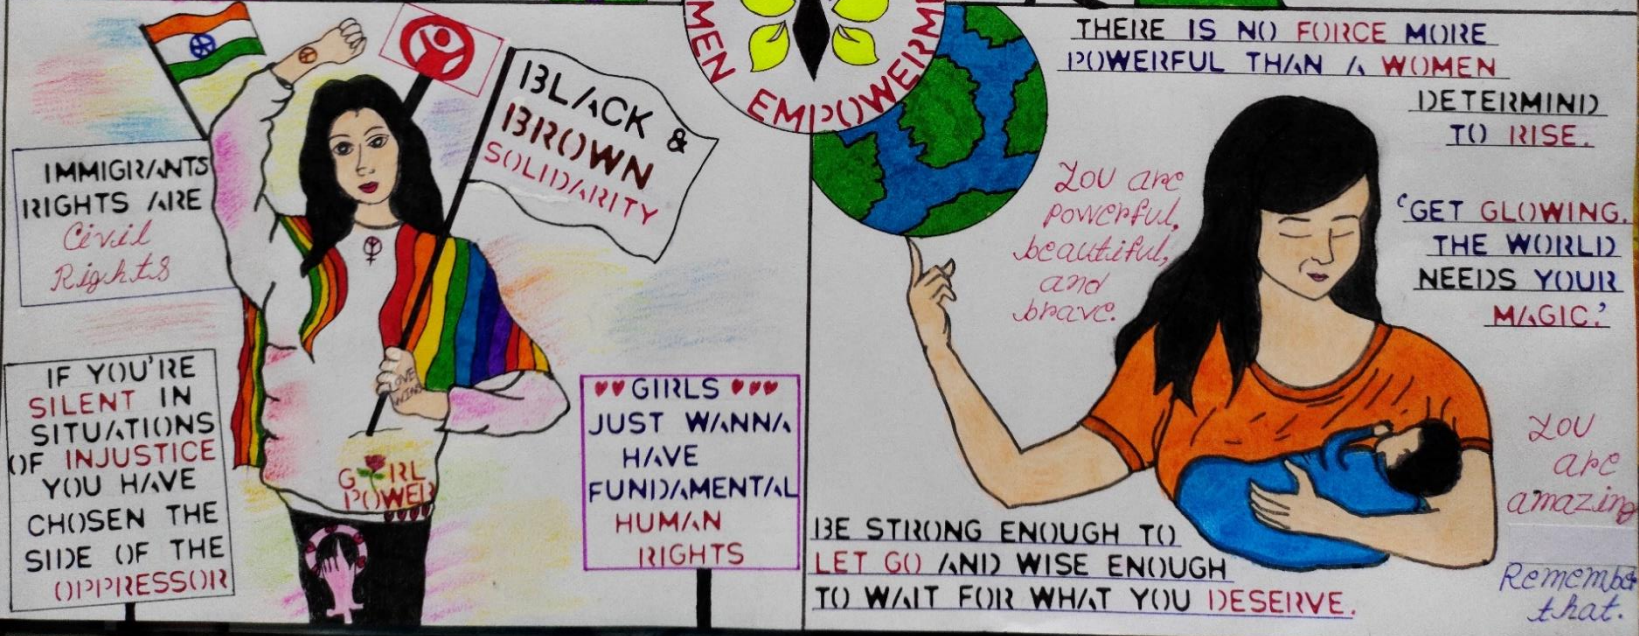 MEN
EMPOWERM
BLACK &
BROWN
SOLIDARITY
IMMIGRANTS
RIGHTS ARE
Civil
Rights
IF YOU'RE
SILENT IN
SITUATIONS
OF INJUSTICE
YOU HAVE
CHOSEN THE
SIDE OF THE
OPPRESSOR
LOVE
WINS
GIRL
POWER
GIRLS
JUST WANNA
HAVE
FUNDAMENTAL
HUMAN
RIGHTS
THERE IS NO FORCE MORE
POWERFUL THAN A WOMEN
DETERMIND
TO RISE.
You are
powerful,
beautiful,
and
brave.
'GET GLOWING.
THE WORLD
NEEDS YOUR
MAGIC.'
You
are
amazing
Remember
that.
BE STRONG ENOUGH TO
LET GO AND WISE ENOUGH
TO WAIT FOR WHAT YOU DESERVE.